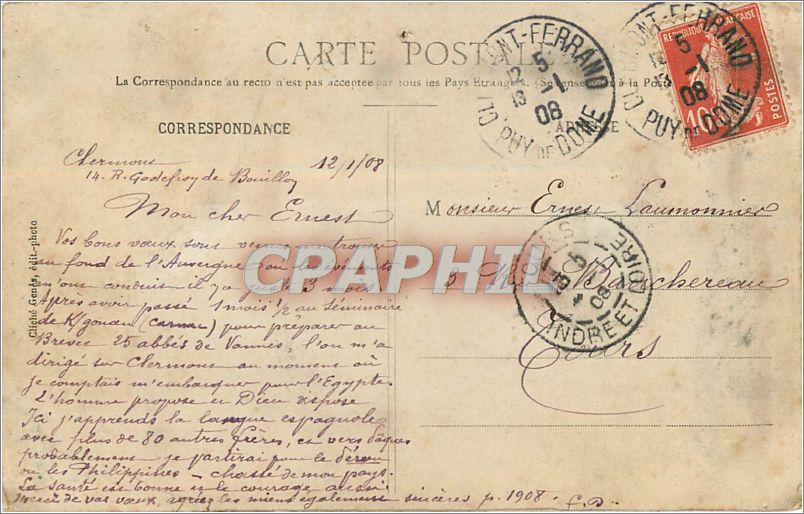 CARTE POSTALE
La Correspondance au recto n'est pas acceptée par tous les Pays Etrangers. (Se renseigner à la Poste)
CORRESPONDANCE
Clermont 12/1/08
14. R. Godefroy de Bouillon
Mon cher Ernest
Vos bons vœux sont venus me trouver
au fond de l'Auvergne où les événements
m'ont conduit il y a juste 3 mois
Après avoir passé 1 mois 1/2 au séminaire
de K/gonan (Carnac) pour préparer au
Brevet 25 abbés de Vannes, l'on m'a
dirigé sur Clermont au moment où
je comptais m'embarquer pour l'Egypte.
L'homme propose et Dieu dispose
Ici j'apprends la langue espagnole
avec plus de 80 autres frères, et vers Pâques
probablement je partirai pour le
ou les Philippines - chassé de mon pays.
La santé est bonne et le courage aussi.
Merci de vos vœux, agréez les miens également sincères p. 1908.
Cliché Genès, édit-photo
CLERMONT-FERRAND
5
12 -1
08
PUY DE DOME
CLERMONT-FERRAND
5
-1
08
PUY DE DOME
REPUBLIQUE FRANÇAISE
10
POSTES
ADRESSE
Monsieur Ernest Laumonnier
3 Barchereau
Tours
TOURS
08
INDRE ET LOIRE
CPAPHIL.com